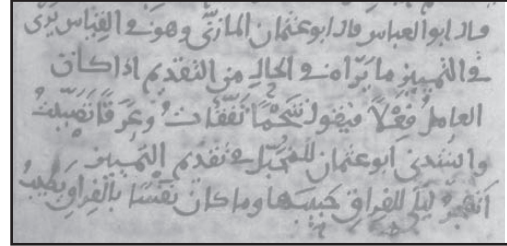 قال ابو العباس قال ابو عثمان المازنّي وهو في القِيَاس يَرَى
في التمييز ما يَرَاه في الحال من التقديم اذا كان
العامل فِعْلًا فيقول شَحْمًا تَفَقَّأتُ وعَرَقًا تَصَبَّبْتُ
وانشدني ابو عثمان للمُخَبَّل في تقدم التمييز
اتهجر ليلى للفراقِ حبيبَها وما كان نَفْسًا بالفراقِ يَطِيبُ